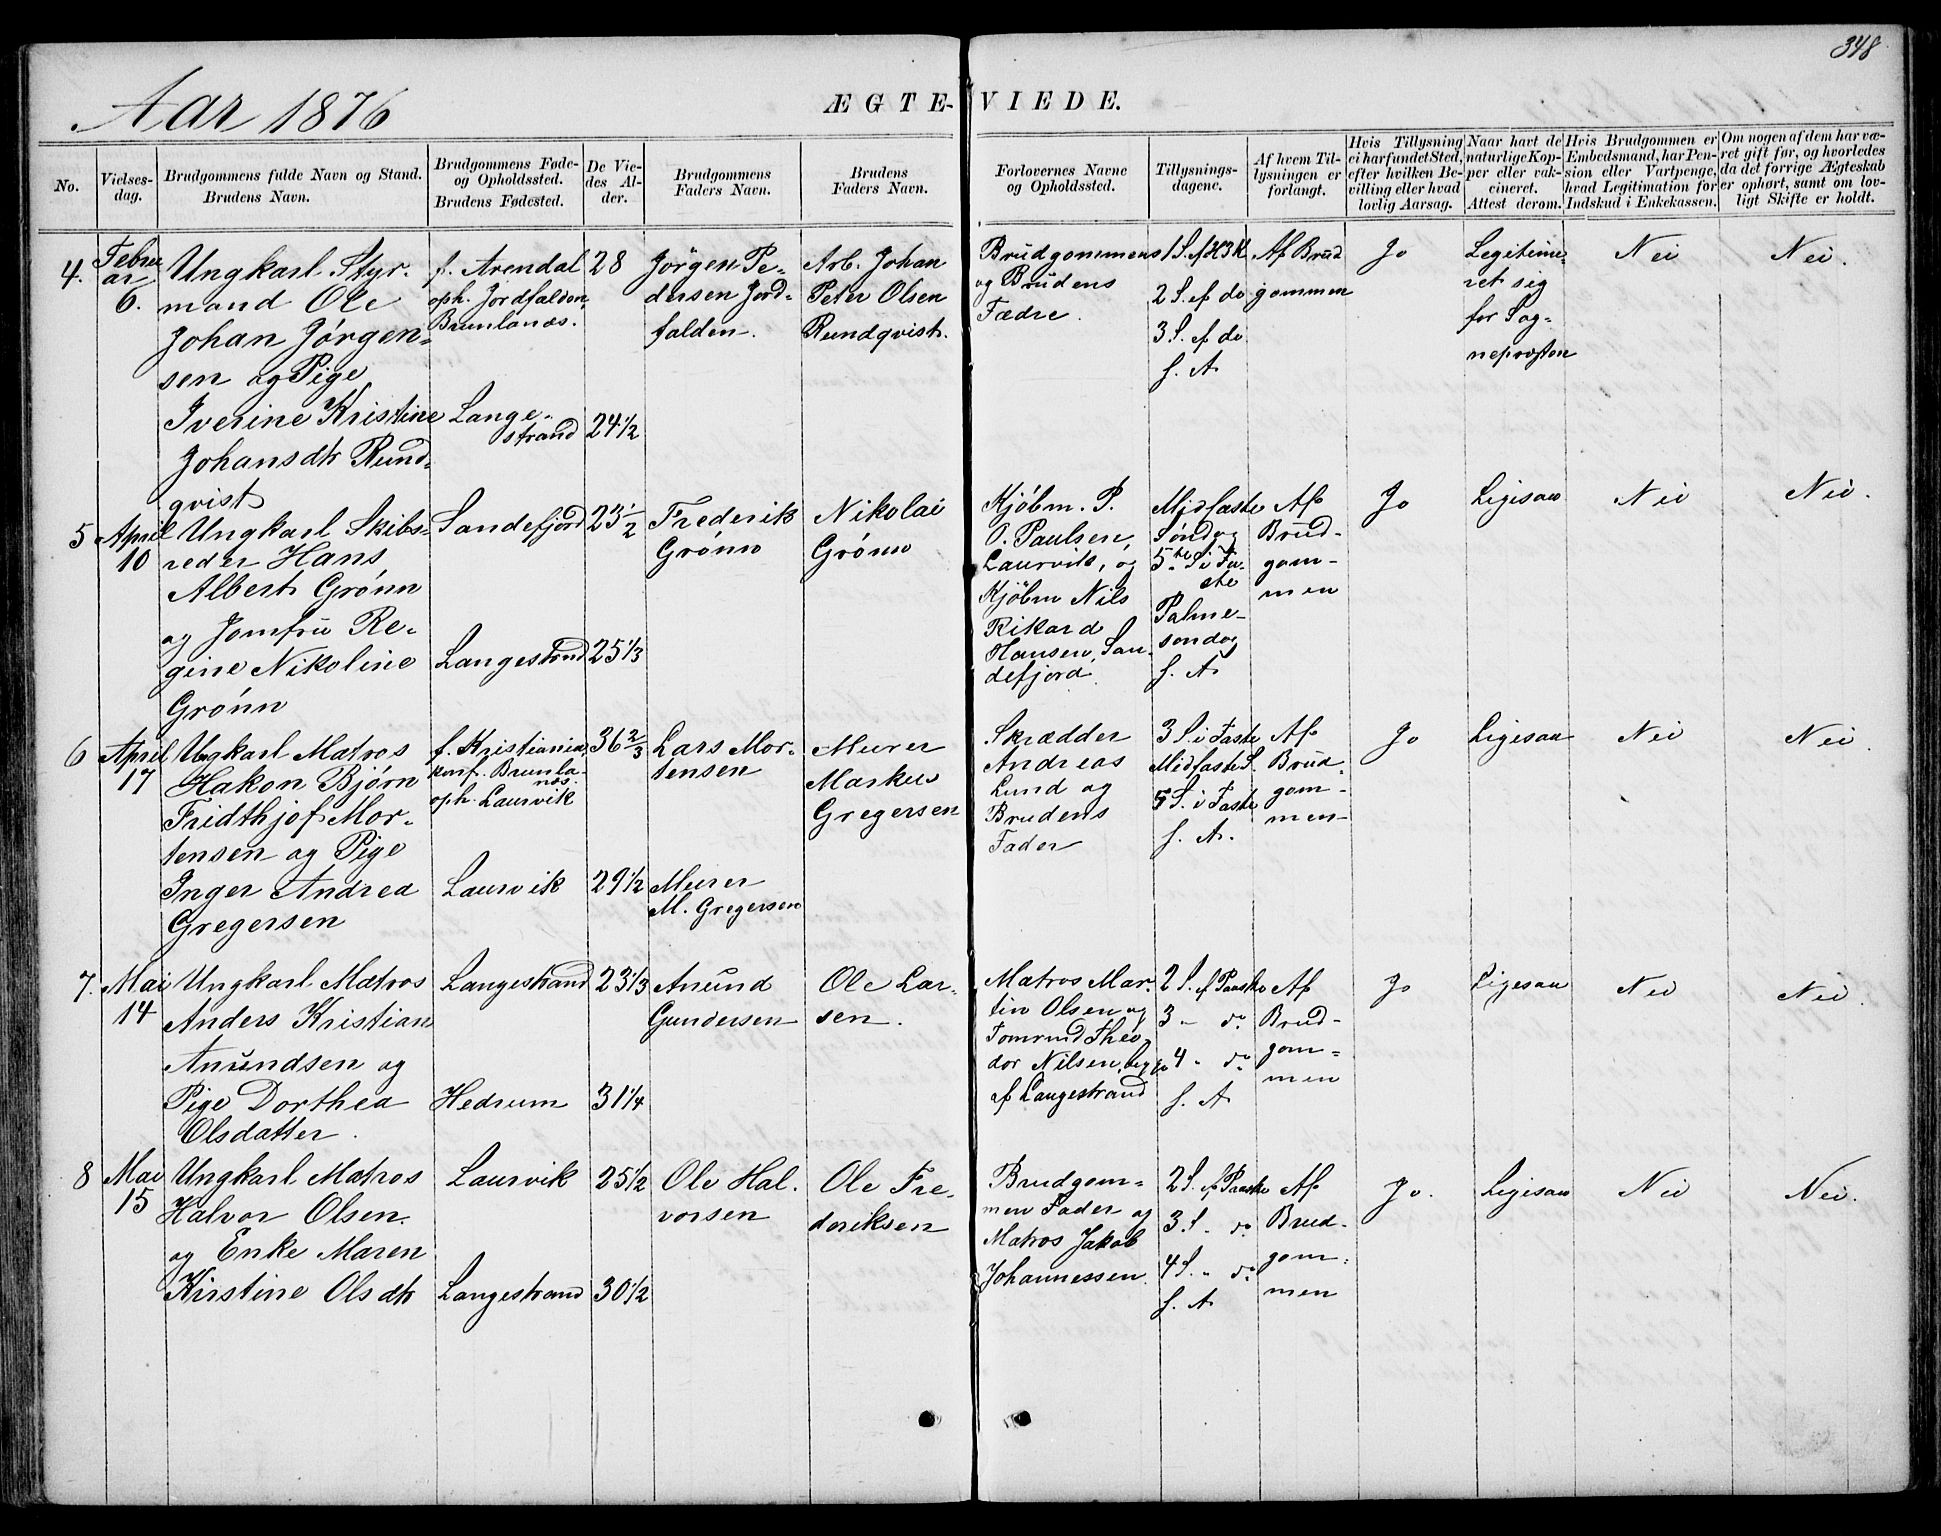 348
Aar 1876
ÆGTE-VIEDE.
No.
Vielses-
dag.
Brudgommens fulde Navn og Stand.
Brudens Navn.
Brudgommens Føde-
og Opholdssted.
Brudens Fødested.
De Vie-
des Al-
der.
Brudgommens
Faders Navn.
Brudens
Faders Navn.
Forlovernes Navne
og Opholdssted.
Tillysnings-
dagene.
Af hvem Til-
lysningen er
forlangt.
Hvis Tillysning
ei har fundet Sted,
efter hvilken Be-
villing eller hvad
lovlig Aarsag.
Naar havt de
naturlige Kop-
per eller vak-
cineret.
Attest derom.
Hvis Brudgommen er
Embedsmand, har Pen-
sion eller Vartpenge,
hvad Legitimation for
Indskud i Enkekassen.
Om nogen af dem har væ-
ret gift før, og hvorledes
da det forrige Ægteskab
er ophørt, samt om lov-
ligt Skifte er holdt.
4.
Febru
ar
6.
Ungkarl Styr-
mand Ole
Johan Jørgen-
sen og Pige
Iverine Kristine
Johansdtr Rund-
qvist
f. Arendal
oph. Jordfalden,
Brunlanæs.
Lange-
strand
28
24 1/2
Jörgen Pe-
dersen Jord-
falden.
Arb. Johan
Peter Olsen
Rundqvist.
Brudgommens
og Brudens
Fædre.
1 S. e/ H 3 K
2 S. e/ do
3 S. e/ do
f. A.
Af Brud
gommen
Jo
Legitime-
ret sig
for Sog-
nepræsten
Nei
Nei.
5
April
10
Ungkarl Skibs-
reder Hans
Albert Grönn
og Jomfru Re-
gine Nikoline
Grönn
Sandefjord
Langestrand
23 1/2
25 1/3
Frederik
Grönn
Nikolai
Grönn
Kjöbm. P.
O. Paulsen,
Laurvik, og
Kjöbm Nils
Rikard
Hansen, San-
defjord.
Midfaste
Söndag
5te S. i Fa-
ste
Palme-
sondag
f. A.
Af
Brud-
gom-
men
Jo
Ligesaa
Nei
Nei.
6
April
17
Ungkarl Matros
Hakon Bjørn
Fridthjof Mor-
tensen og Pige
Inger Andrea
Gregersen
f. Kristiania,
konf. Brunla-
næs.
oph. Laurvik
Laurvik
36 2/3
29 1/2
Lars Mor-
tensen
Murer
M. Gregersen
Murer
Markus
Gregersen
Skrædder
Andreas
Lund og
Brudens
Fader
3 S. i Faste
Midfaste S.
5 S. i Faste
f. A.
Af
Brud-
gom-
men-
Jo
Ligesaa
Nei
Nei.
7.
Mai
14
Ungkarl Matros
Anders Kristian
Anundsen og
Pige Dorthea
Olsdatter.
Langestrand
Hedrum
23 1/3
31 1/4
Anund
Gundersen
Ole Lar-
sen.
Matros Mar-
tin Olsen og
Tomrmd Theo-
dor Nilsen, begge
af Langestrand
2 S. e/ Paaske
3 " do
4 " do
f. A
Af
Brud-
gom-
men
Jo
Ligesaa
Nei
Nei.
8
Mai
15
Ungkarl Matros
Halvor Olsen.
og Enke Maren
Kirstine Olsdtr
Laurvik
Langestrand
25 1/2
30 1/2
Ole Hal-
vorsen
Ole Fre-
deriksen
Brudgom-
men Fader og
Matros Jakob
Johannessen.
2 S. e/ Paaske
3 S. " do
4 S. " do
f. A
Af
Brud-
gom-
men
Jo.
Ligesaa
Nei
Nei.